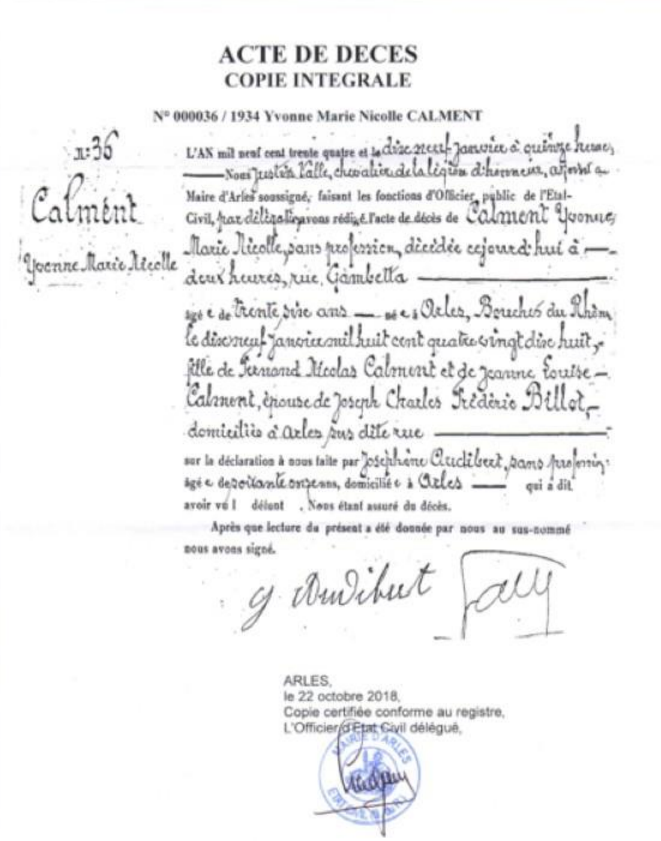 ACTE DE DECES
COPIE INTEGRALE
N° 000036 / 1934 Yvonne Marie Nicolle CALMENT
n: 36
Calment
Yvonne Marie Nicolle
L'AN mil neuf cent trente quatre et le dix neuf Janvier à quinze heures,
Nous Justin Valle, chevalier de la légion d'honneur, adjoint au
Maire d'Arles soussigné, faisant les fonctions d'Officier public de l'Etat-
Civil, par délégation avons rédigé l'acte de décès de Calment Yvonne,
Marie Nicolle, sans profession, décédée cejourd'hui à
deux heures, rue Gambetta
âgé e de trente six ans né e à Arles, Bouches du Rhône
le dix neuf Janvier mil huit cent quatre vingt dix huit,
fille de Fernand Nicolas Calment et de Jeanne Louise
Calment, épouse de Joseph Charles Frédéric Billot,
domiciliés à Arles sus dite rue
sur la déclaration à nous faite par Joséphine Audibert, sans profession,
âgé e de soixante onze ans, domicilié e à Arles qui a dit
avoir vu l défunt . Nous étant assuré du décès.
Après que lecture du présent a été donnée par nous au sus-nommé
nous avons signé.
J. Audibert
ARLES,
le 22 octobre 2018,
Copie certifiée conforme au registre,
L'Officier d'Etat Civil délégué,
MAIRIE D'ARLES
ETAT CIVIL